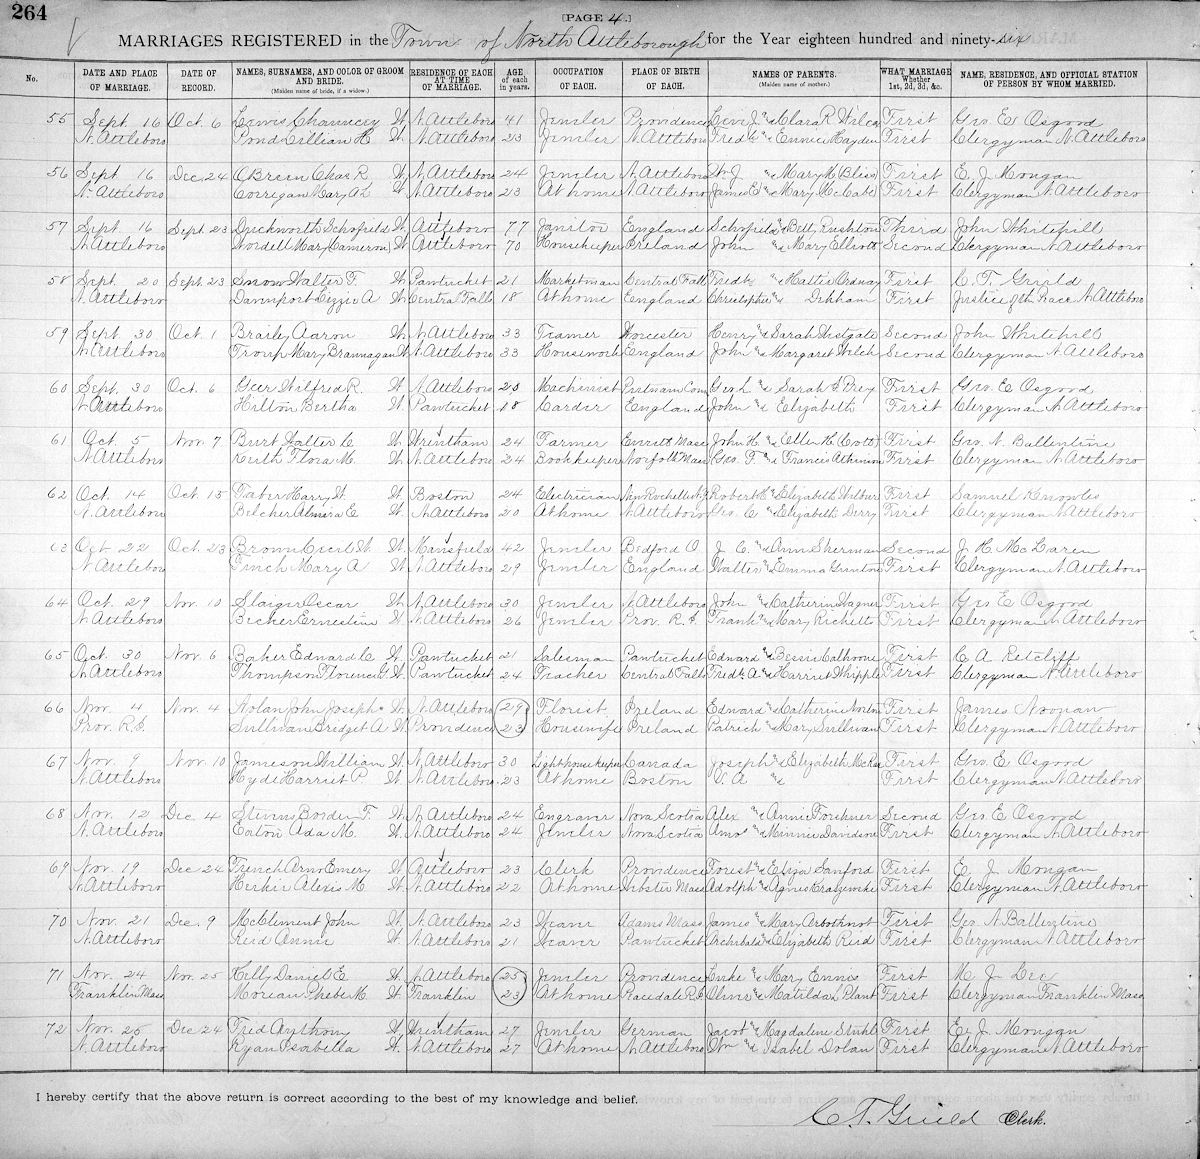 264
[PAGE 4.]
MARRIAGES REGISTERED in the Town of North Attleborough for the Year eighteen hundred and ninety-six
No. DATE AND PLACE OF MARRIAGE. DATE OF RECORD. NAMES, SURNAMES, AND COLOR OF GROOM AND BRIDE. (Maiden name of bride, if a widow.) RESIDENCE OF EACH AT TIME OF MARRIAGE. AGE of each in years. OCCUPATION OF EACH. PLACE OF BIRTH OF EACH. NAMES OF PARENTS. (Maiden name of mother.) WHAT MARRIAGE Whether 1st, 2d, 3d, &c. NAME, RESIDENCE, AND OFFICIAL STATION OF PERSON BY WHOM MARRIED.
55 Sept 16 Oct. 6 Lewis Chauncey W N. Attleboro 41 Jeweler Providence Levi J. & Clara R Wilcox First Geo. E Osgood
N. Attleboro Pond Lillian H W N. Attleboro 23 Jeweler N. Attleboro Fredk & Hayden First Clergyman N. Attleboro
56 Sept 16 Dec. 24 OBrien Chas R W N. Attleboro 24 Jeweler N. Attleboro Wm J & Mary M Bliss First E. J. Mongan
N. Attleboro Corrigan Mary A L W N. Attleboro 23 At home N. Attleboro James E & Mary McCabe First Clergyman N. Attleboro
57 Sept 16 Sept 23 Duckworth Schofield W Attleboro 77 Janitor England Schofield & Betty Rushton Third John Whitehill
N. Attleboro Wordell Mary (Cameron) W Attleboro 70 Housekeeper Ireland John & Mary Elliott Second Clergyman N. Attleboro
58 Sept. 20 Sept. 23 Snow Walter F. W Pawtucket 21 Marketman Central Falls Fredk & Hattie Ordway First C. T. Guild
N. Attleboro Davenport Lizzie A W Central Falls 18 At home England Christopher & First Justice of the Peace N. Attleboro
59 Sept. 30 Oct. 1 Brailey Aaron W N. Attleboro 33 Framer Worcester Henry & Sarah Westgate Second John Whitehill
N. Attleboro Troup Mary Brannagan W N. Attleboro 33 Housework England John & Margaret Welch Second Clergyman N. Attleboro
60 Sept. 30 Oct. 6 Geer Wilfred R. W N. Attleboro 20 Machinist Putnam Conn Geo. L & Sarah First Geo. E Osgood
N. Attleboro Hilton Bertha W. Pawtucket 18 Carder England John & Elizabeth First Clergyman N. Attleboro
61 Oct. 5 Nov. 7 Burt Walter C W Wrentham 24 Farmer Everett Mass John H. & Ellen H (Cott) First Geo. N. Ballentine
N. Attleboro Keith Flora M. W N. Attleboro 24 Bookkeeper Norfolk Mass Geo. F. & Frances Atkinson First Clergyman N. Attleboro
62 Oct. 14 Oct. 15 Faber Harry W. W Boston 24 Electrician New Rochelle N.Y. Robert H & Elizabeth Wilbur First Samuel Knowles
N. Attleboro Belcher Almira E W N. Attleboro 20 At home N. Attleboro Geo. C & Elizabeth Derry First Clergyman N. Attleboro
63 Oct 22 Oct. 23 Brown Cecil W. W. Mansfield 42 Jeweler Bedford O. J. C. & Ann Sherman Second J. H. McLaren
N. Attleboro Finch Mary A W N. Attleboro 29 Jeweler England Walter & Emma Gunton First Clergyman N. Attleboro
64 Oct. 29 Nov. 10 Slaiger Oscar W N. Attleboro 30 Jeweler N. Attleboro John & Catherine Wagner First Geo E Osgood
N. Attleboro Becher Ernestine W N. Attleboro 26 Jeweler Prov. R.I. Frank & Mary Richetts First Clergyman N. Attleboro
65 Oct. 30 Nov. 6 Baker Edward C W Pawtucket 21 Salesman Pawtucket Edward & Bessie Calhoone First C A Ratcliff
N. Attleboro Thompson Florence G. W Pawtucket 24 Teacher Central Falls Fredk. A & Harriet Whipple First Clergyman N. Attleboro
66 Nov. 4 Nov. 4 Nolan John Joseph W N. Attleboro 29 Florist Ireland Edward & Catherine Norton First James Noonan
Prov. R.I. Sullivan Bridget A W Providence 23 Housewife Ireland Patrick & Mary Sullivan First Clergyman N. Attleboro
67 Nov. 9 Nov. 10 Jameson William W N. Attleboro 30 Lighthouse keeper Canada Joseph & Elizabeth McRae First Geo. E. Osgood
N. Attleboro Hyde Harriet P W N. Attleboro 23 At home Boston & First Clergyman N. Attleboro
68 Nov. 12 Dec. 4 Stevens Borden F. W N. Attleboro 24 Engraver Nova Scotia Alex & Annie Forehner Second Geo. E Osgood
N. Attleboro Eaton Ada M. W N. Attleboro 24 Jeweler Nova Scotia Amos & Minnie Davidson First Clergyman N. Attleboro
69 Nov. 19 Dec 24 French Arno Emery W Attleboro 23 Clerk Providence Forest & Eliza Sanford First E. J. Mongan
N. Attleboro Herkie Alexis M W N. Attleboro 22 At home Webster Mass Adolph & Agnes First Clergyman N. Attleboro
70 Nov. 21 Dec. 9 McClement John W. N. Attleboro 23 Weaver Adams Mass James & Mary Arbothnot First Geo. N. Ballentine
N. Attleboro Reid Annie W. N. Attleboro 21 Weaver Pawtucket Archibald & Elizabeth Reid First Clergyman N. Attleboro
71 Nov. 24 Nov. 25 Kelly Daniel E W N. Attleboro 25 Jeweler Providence Luke & Mary Ennis First M. J. Lee
Franklin Mass Moreau Phebe M. W Franklin 23 At home Peacedale R.I. Oliver & Matilda L Plant First Clergyman Franklin Mass
72 Nov. 25 Dec 24 Fred Anthony W. Wrentham 27 Jeweler German Jacob & Magdalene First E. J. Mongan
N. Attleboro Ryan Isabella W. N. Attleboro 27 At home N. Attleboro Wm & Isabel Dolan First Clergyman N. Attleboro
I hereby certify that the above return is correct according to the best of my knowledge and belief.
C. T. Guild Clerk.